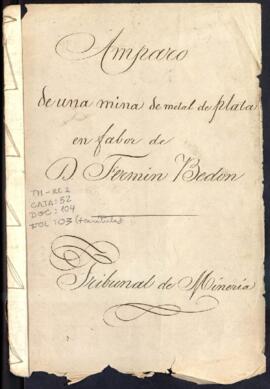 Amparo
de una mina de metal de plata
en fabor de
D. Fermin Bedon
TM-RE 2
CAJA: 52
DOC: 104
FOL: 03 (+caratula)
Tribunal de Mineria